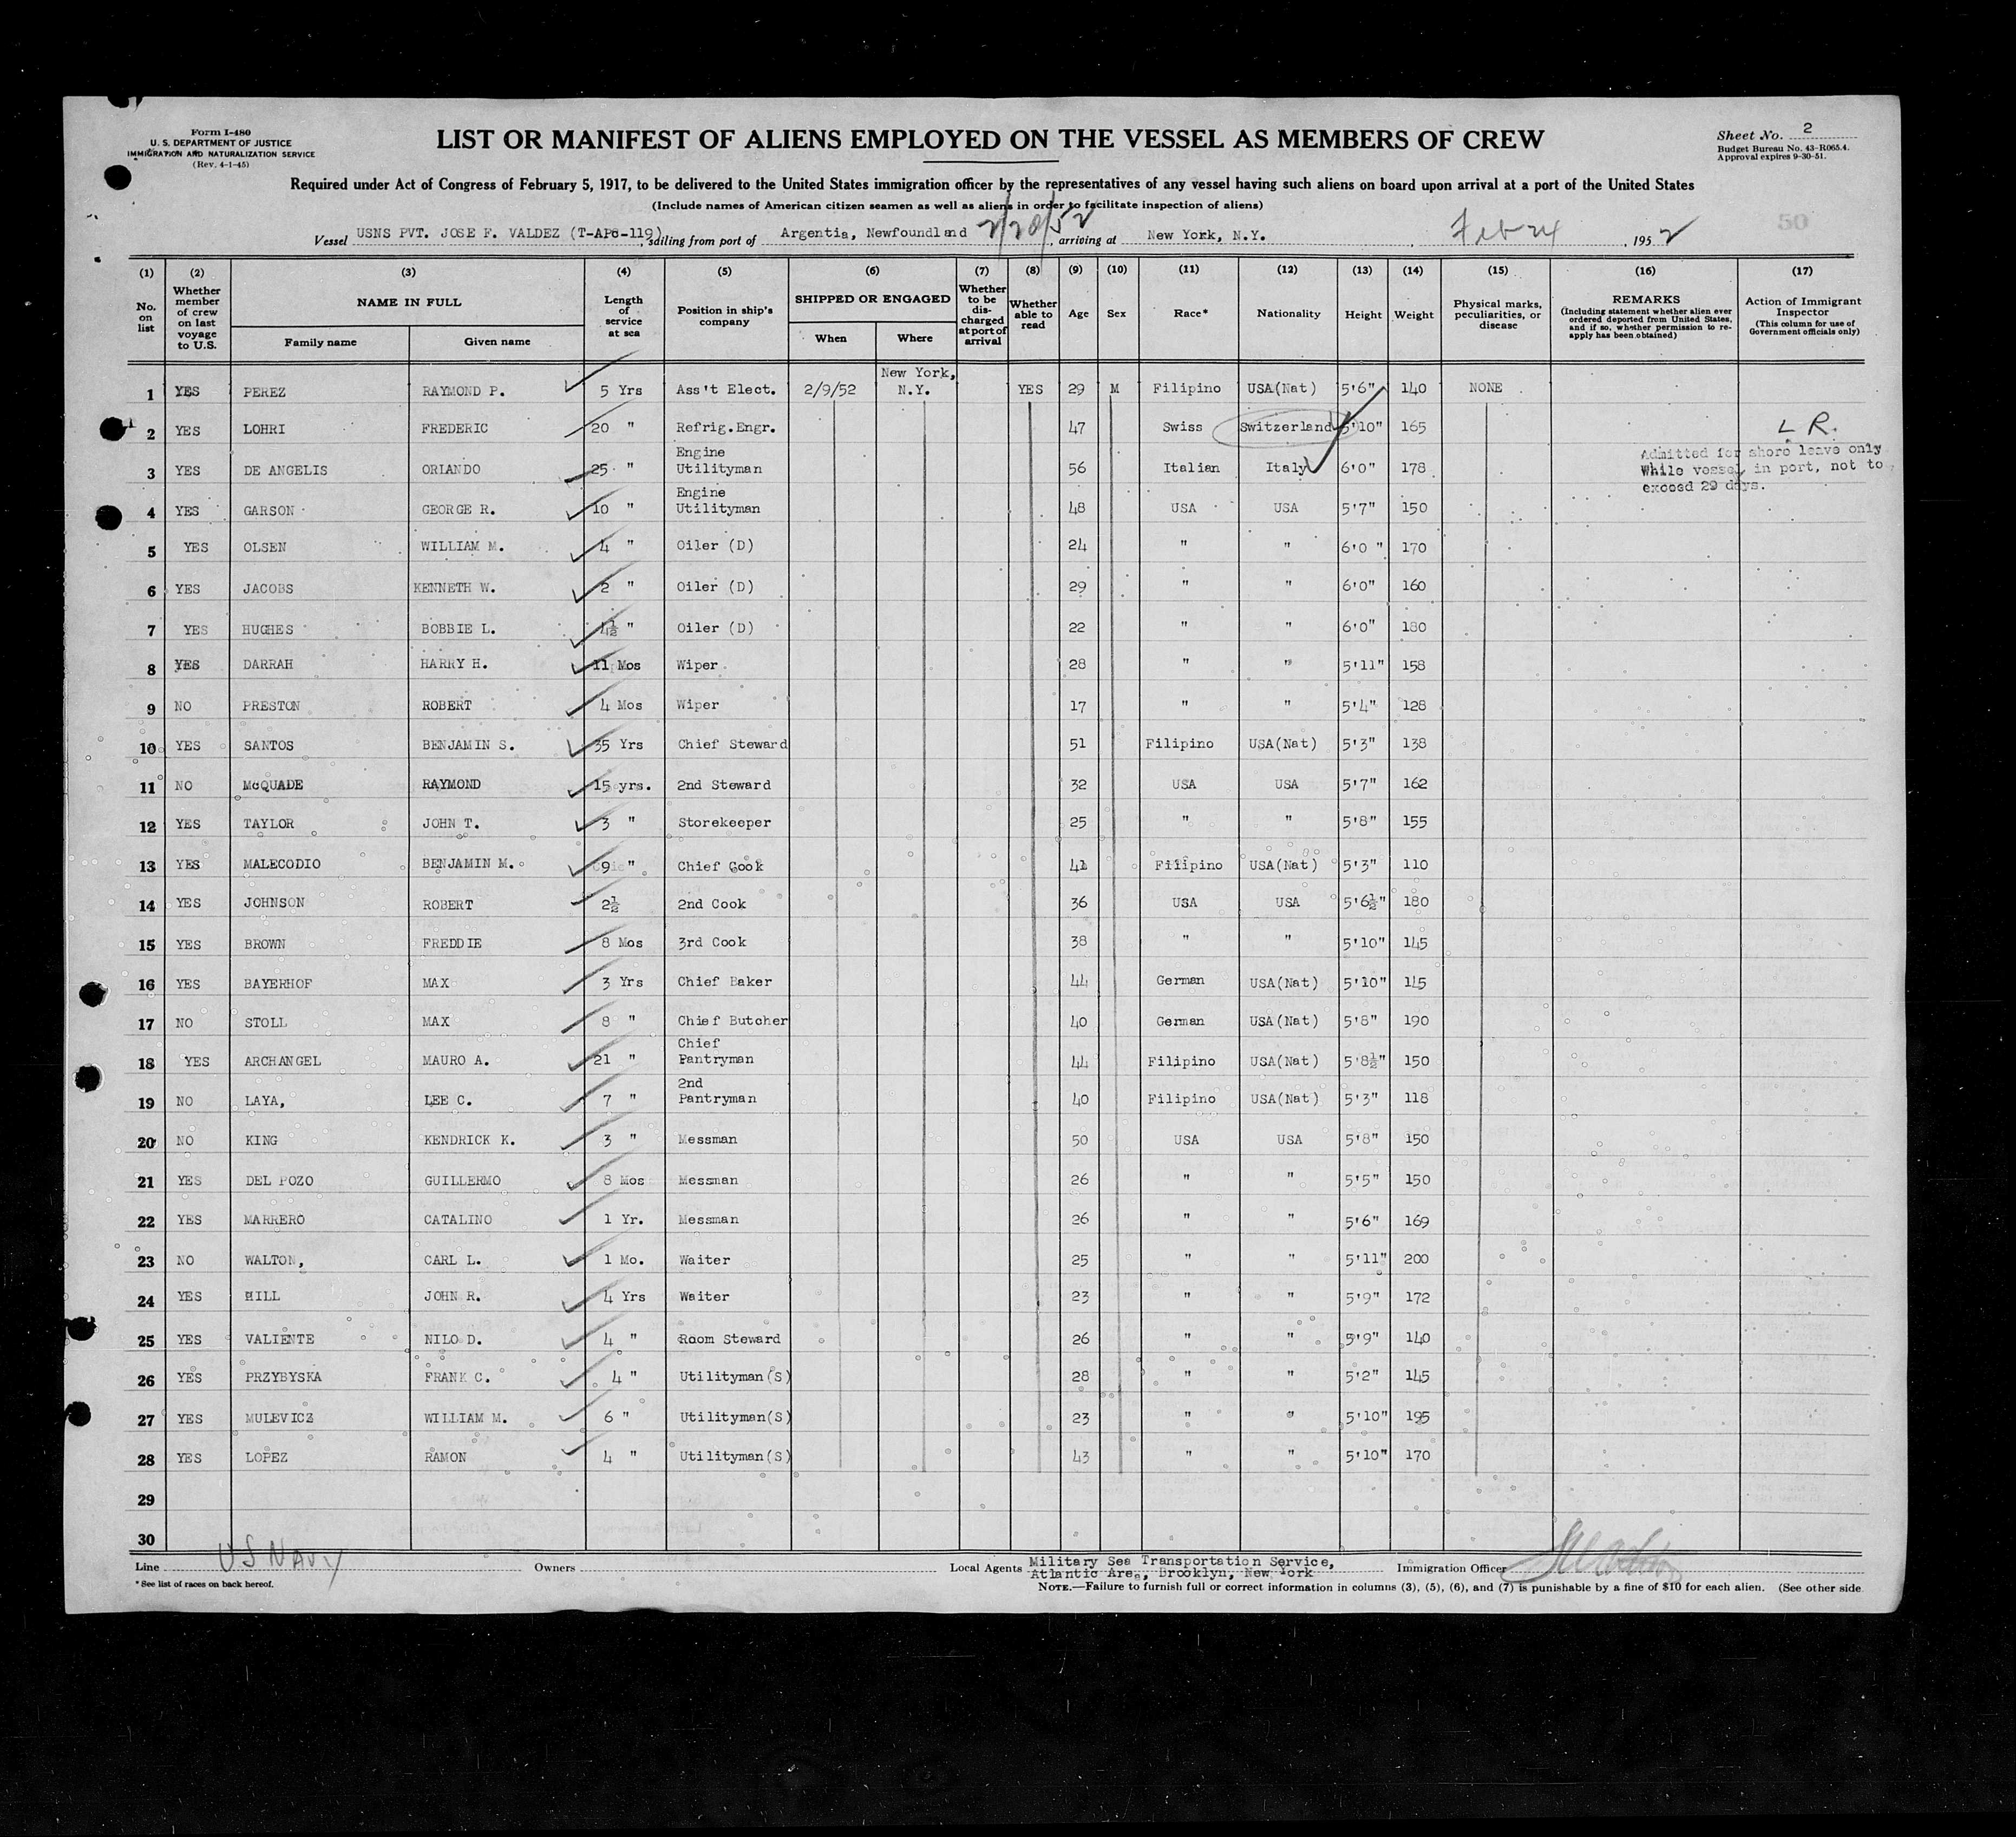 Form I-480
U. S. DEPARTMENT OF JUSTICE
IMMIGRATION AND NATURALIZATION SERVICE
(Rev. 4-1-45)
LIST OR MANIFEST OF ALIENS EMPLOYED ON THE VESSEL AS MEMBERS OF CREW
Sheet No. 2
Budget Bureau No. 43-R065.4.
Approval expires 9-30-51.
Required under Act of Congress of February 5, 1917, to be delivered to the United States immigration officer by the representatives of any vessel having such aliens on board upon arrival at a port of the United States
(Include names of American citizen seamen as well as aliens in order to facilitate inspection of aliens)
50
Vessel USNS PVT. JOSE F. VALDEZ (T-APc-119), sailing from port of Argentia, Newfoundland 2/20/52, arriving at New York, N.Y., Feb 24, 1952
(1) No. on list
(2) Whether member of crew on last voyage to U.S.
(3) NAME IN FULL Family name Given name
(4) Length of service at sea
(5) Position in ship's company
(6) SHIPPED OR ENGAGED When Where
(7) Whether to be discharged at port of arrival
(8) Whether able to read
(9) Age
(10) Sex
(11) Race*
(12) Nationality
(13) Height
(14) Weight
(15) Physical marks, peculiarities, or disease
(16) REMARKS (Including statement whether alien ever ordered deported from United States, and if so, whether permission to reapply has been obtained)
(17) Action of Immigrant Inspector (This column for use of Government officials only)
1 YES PEREZ RAYMOND P. 5 Yrs Ass't Elect. 2/9/52 New York, N.Y. YES 29 M Filipino USA(Nat) 5'6" 140 NONE
2 YES LOHRI FREDERIC 20 " Refrig.Engr. 47 Swiss Switzerland 5'10" 165 L R.
3 YES DE ANGELIS ORIANDO 25 " Engine Utilityman 56 Italian Italy 6'0" 178 Admitted for shore leave only While vessel in port, not to exceed 29 days.
4 YES GARSON GEORGE R. 10 " Engine Utilityman 48 USA USA 5'7" 150
5 YES OLSEN WILLIAM M. 4 " Oiler (D) 24 " " 6'0 " 170
6 YES JACOBS KENNETH W. 2 " Oiler (D) 29 " " 6'0" 160
7 YES HUGHES BOBBIE L. " Oiler (D) 22 " " 6'0" 180
8 YES DARRAH HARRY H. 11 Mos Wiper 28 " " 5'11" 158
9 NO PRESTON ROBERT 4 Mos Wiper 17 " " 5'4" 128
10 YES SANTOS BENJAMIN S. 35 Yrs Chief Steward 51 Filipino USA(Nat) 5'3" 138
11 NO McQUADE RAYMOND 15 yrs. 2nd Steward 32 USA USA 5'7" 162
12 YES TAYLOR JOHN T. 3 " Storekeeper 25 " " 5'8" 155
13 YES MALECODIO BENJAMIN M. 9 " Chief Cook 41 Filipino USA(Nat) 5'3" 110
14 YES JOHNSON ROBERT 2½ 2nd Cook 36 USA USA 5'6½" 180
15 YES BROWN FREDDIE 8 Mos 3rd Cook 38 " " 5'10" 145
16 YES BAYERHOF MAX 3 Yrs Chief Baker 44 German USA(Nat) 5'10" 145
17 NO STOLL MAX 8 " Chief Butcher 40 German USA(Nat) 5'8" 190
18 YES ARCHANGEL MAURO A. 21 " Chief Pantryman 44 Filipino USA(Nat) 5'8½" 150
19 NO LAYA, LEE C. 7 " 2nd Pantryman 40 Filipino USA(Nat) 5'3" 118
20 NO KING KENDRICK K. 3 " Messman 50 USA USA 5'8" 150
21 YES DEL POZO GUILLERMO 8 Mos Messman 26 " " 5'5" 150
22 YES MARRERO CATALINO 1 Yr. Messman 26 " " 5'6" 169
23 NO WALTON, CARL L. 1 Mo. Waiter 25 " " 5'11" 200
24 YES HILL JOHN R. 4 Yrs Waiter 23 " " 5'9" 172
25 YES VALIENTE NILO D. 4 " Room Steward 26 " " 5'9" 140
26 YES PRZYBYSKA FRANK C. 4 " Utilityman(S) 28 " " 5'2" 145
27 YES MULEVICZ WILLIAM M. 6 " Utilityman(S) 23 " " 5'10" 195
28 YES LOPEZ RAMON 4 " Utilityman(S) 43 " " 5'10" 170
29
30
Line US NAVY Owners Local Agents Military Sea Transportation Service, Atlantic Area, Brooklyn, New York Immigration Officer
*See list of races on back hereof.
NOTE.—Failure to furnish full or correct information in columns (3), (5), (6), and (7) is punishable by a fine of $10 for each alien. (See other side